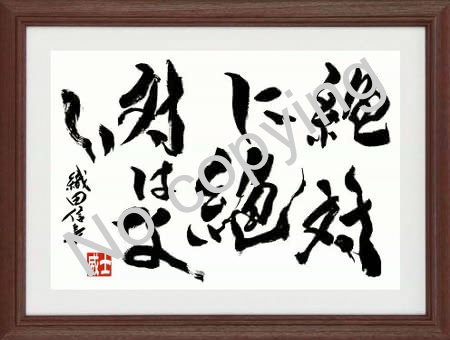 絶対
に絶
対はな
い
織田信長
No copying